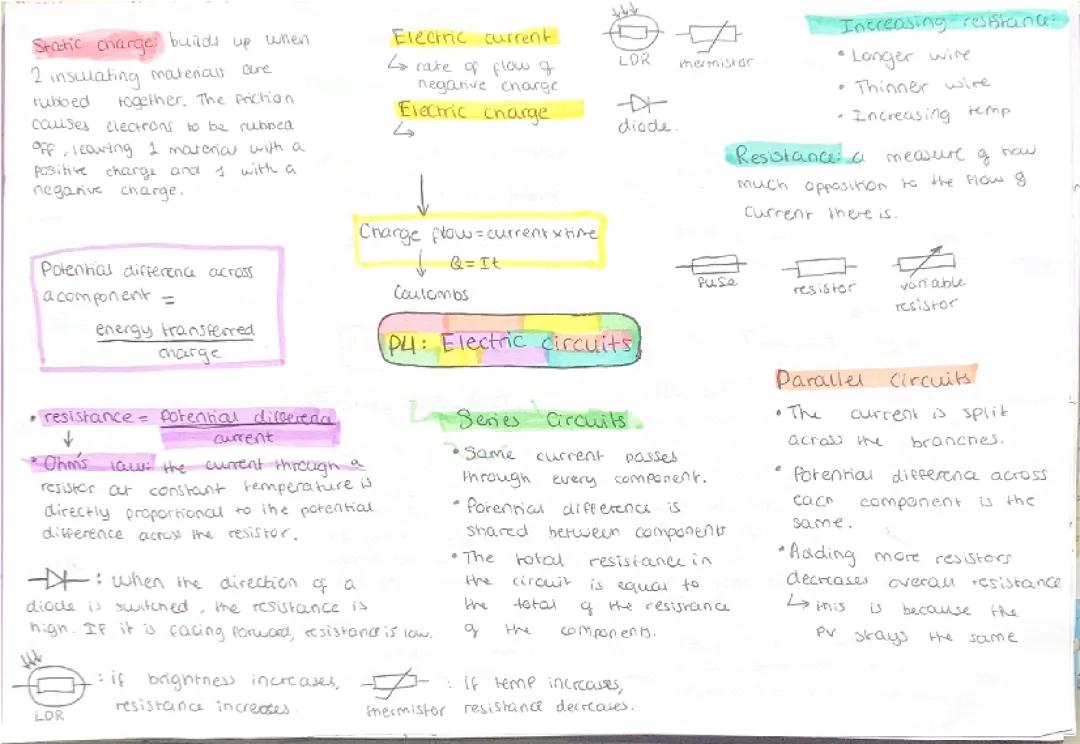 Static charge: builds up when
2 insulating materials are
rubbed together. The friction
causes electrons to be rubbed
off, leaving 1 material with a
positive charge and 1 with a
negative charge.
Electric current
↳ rate of flow of
negative charge
Electric charge
↳
Charge flow = current × time
Q = It
Coulombs
LDR
thermistor
diode.
Increasing resistance:
• Longer wire
• Thinner wire
• Increasing temp
Resistance: a measure of how
much opposition to the flow of
current there is.
fuse
resistor
variable
resistor
Potential difference across
a component =
energy transferred
charge
P4: Electric circuits
• resistance = Potential difference
current
• Ohm's law: the current through a
resistor at constant temperature is
directly proportional to the potential
difference across the resistor.
: when the direction of a
diode is switched, the resistance is
high. If it is facing forward, resistance is low.
LDR
: if brightness increases,
resistance increases.
thermistor
: if temp increases,
resistance decreases.
Series Circuits
• Same current passes
through every component.
• Potential difference is
shared between components
• The total resistance in
the circuit is equal to
the total of the resistance
of the components.
Parallel Circuits
• The current is split
across the branches.
• Potential difference across
each component is the
same.
• Adding more resistors
decreases overall resistance
↳ this is because the
PV stays the same